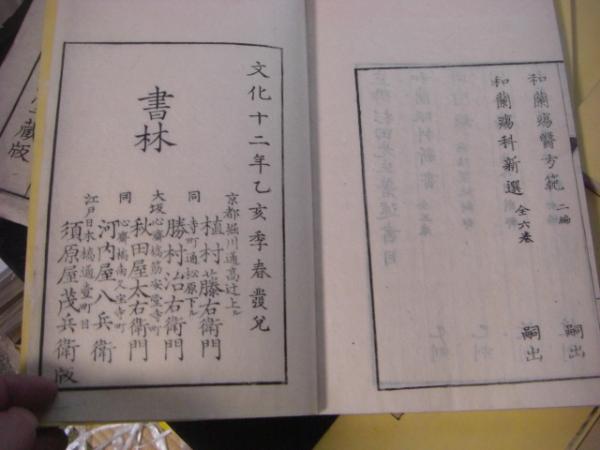 和蘭瘍醫方範 二編 嗣出
和蘭瘍科新選 全六卷 嗣出
文化十二年乙亥季春發兌
書林
京都堀川通高辻上ル
植村藤右衛門
同 寺町通松原下ル
勝村治右衛門
大坂心齋橋筋安堂寺町
秋田屋太右衛門
同 心齋橋南久宝寺町
河内屋八兵衛
江戸日本橋通壹町目
須原屋茂兵衛版
藏版